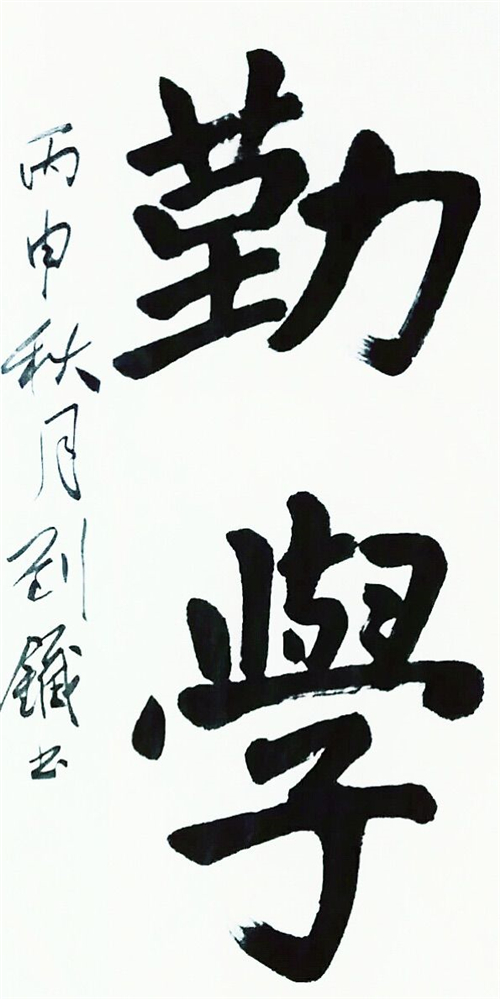 勤學
丙申秋月劉鐵书